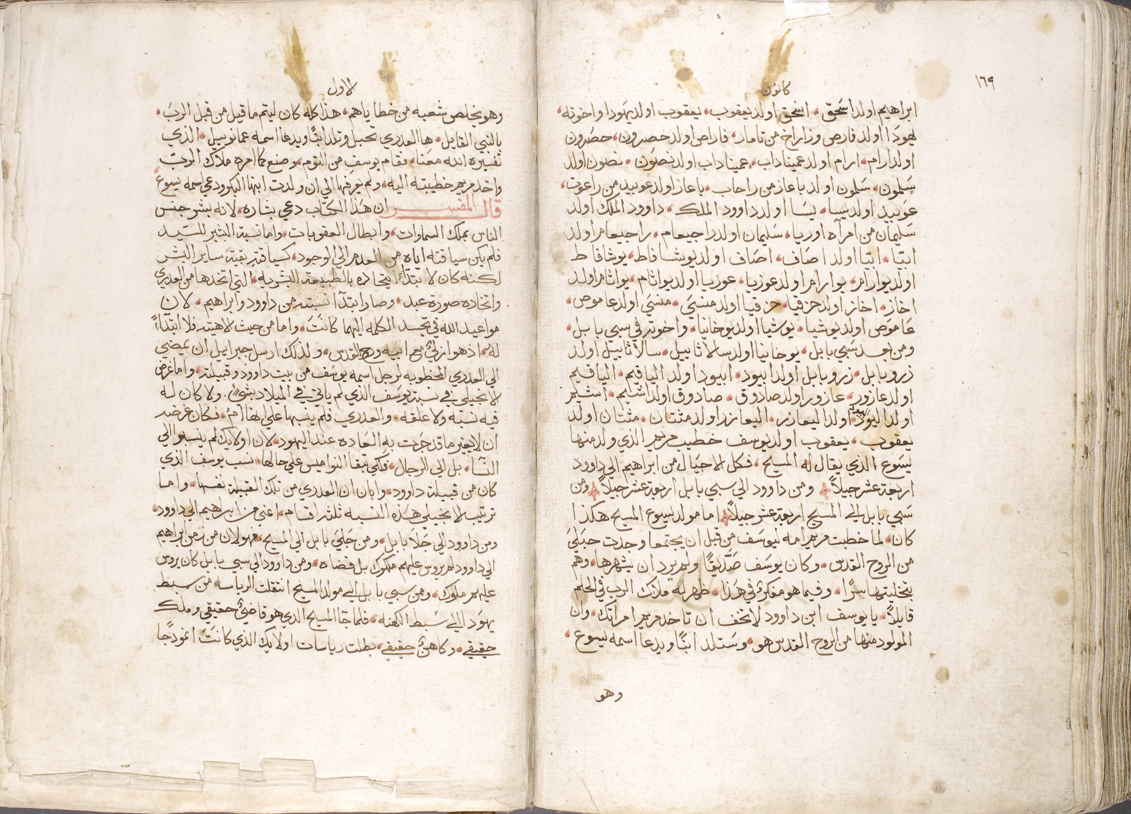 كانون
١٦٩
ابراهيم اولد اسحق، اسحق اولد يعقوب، يعقوب اولد يهودا واخوته،
يهودا اولد فارص وزاراخ من تامار، فارص اولد حصرون، حصرون
اولد ارام، ارام اولد عميناداب، عميناداب اولد نصون، نصون اولد
سلمون، سلمون اولد باعاز من راحاب، باعاز اولد عوبيد من راعوت،
عوبيد اولد يسا، يسا اولد داوود الملك، داوود الملك اولد
سليمان من امراه اوريا، سليمان اولد راجيعام، راجيعام اولد
ابيا، ابيا اولد اصاف، اصاف اولد يوشافاط، يوشافاط
اولد يوارام، يوارام اولد عوزيا، عوزيا اولد يواثام، يواثام اولد
اخاز، اخاز اولد حزقيا، حزقيا اولد منشي، منشي اولد عاموص،
عاموص اولد يوشيا، يوشيا اولد يوخانيا، واخوته في سبي بابل،
ومن بعد سبي بابل، يوخانيا اولد سالاثاييل، سالاثاييل اولد
زروبابل، زروبابل اولد ابيود، ابيود اولد الياقيم، الياقيم
اولد عازور، عازور اولد صادوق، صادوق اولد اشيم، اشيم
اولد اليود، اليود اولد اليعازر، اليعازر اولد متتان، متتان اولد
يعقوب، يعقوب اولد يوسف خطيب مريم الذي ولد منها
يسوع الذي يقال له المسيح، فكل الاجيال من ابراهيم الى داوود
اربعة عشر جيلاً، ومن داوود الى سبي بابل اربعة عشر جيلاً، ومن
سبي بابل الى المسيح اربعة عشر جيلاً، اما مولد يسوع المسيح هكذا
كان، لما خطبت مريم امه ليوسف من قبل ان يجتمعا وجدت حبلى
من الروح القدس، وكان يوسف صديقاً ولم يرد ان يشهرها، وهم
بتخليتها سراً، وفيما هو مفكر في هذا، ظهر له ملاك الرب في الحلم
قايلاً، يا يوسف ابن داوود لا تخف ان تاخد مريم امراتك، وان
المولود منها من الروح القدس هو، وستلد ابناً ويدعا اسمه يسوع،
وهو
الاول
وهو يخلص شعبه من خطاياهم، هذا كله كان ليتم ما قيل من قبل الرب،
بالنبي القايل، ها العدري تحبل وتلد ابناً ويدعا اسمه عمانوييل، الذي
تفسيره الله معنا، فقام يوسف من النوم، وصنع كما امره ملاك الرب
واخد مريم خطيبته اليه، ولم يعرفها الى ان ولدت ابنها البكر ودعي اسمه يسوع
قال المفسر ان هذا الكتاب دعي بشاره، لانه بشر جنس
الناس بملك السماوات، وابطال العقوبات، واما نسبة البشر للسيد
فلم يكن سياقته اياه من العدم الى الوجود، كسياقته بقية ساير البشر
لكنه كان لابتداء اتحاده بالطبيعة البشريه، التي اتخدها من العدري
واتخاده صورة عبد، وصار ابتدا نسبته من داوود وابراهيم، لان
مواعيد الله في تجسد الكلمه اليهما كانت، واما من حيث لاهيته فلا ابتداء
له، اذ هو ازلي مع ابيه وروح القدس، ولذلك ارسل جبراييل ان يمضي
الى العدري المخطوبه لرجل اسمه يوسف من بيت داوود وقبيلته، واما غرض
الانجيلي في نسبة يوسف الذي لم ياتي في الميلاد بشي، ولا كان له
فيه نسبه ولا علقه، والعدري فلم ينسبها على انها امه، فكان غرضه
ان لا يغير ما قد جرت به العاده عند اليهود، لان اولايك لم ينسبوا الى
النسا، بل الى الرجل، فلكي تبقا النواميس على حالها، نسب يوسف الذي
كان من قبيلة داوود، وابان ان العدري من تلك القبيلة نفسها، واما
ترتيب الانجيلي هذه النسبه ثلثة اقسام، اعني من ابراهيم الى داوود،
ومن داوود الى جلا بابل، ومن جلي بابل الى المسيح، فهو لان من زمن ابراهيم
الى داوود لم يروس عليهم ملوك بل قضاه، ومن داوود الى سبي بابل كان يروس
عليهم ملوك، ومن سبي بابل الى مولد المسيح انتقلت الرياسه من سبط
يهودا الى سبط الكهنه، فلما جا المسيح الذي هو قاضي حقيقي وملك
حقيقي، وكاهن حقيقي، بطلت رياسات اولايك الذي كانت انمودجاً